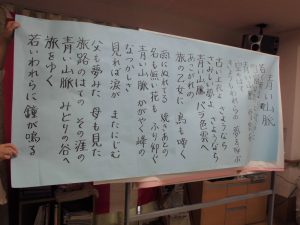 青い山脈
きょうもわれらの 夢を呼ぶ
古い上衣よ さようなら
さみしい夢よ さようなら
青い山脈 バラ色雲へ
あこがれの
旅の乙女に 鳥も啼く
雨にぬれてる 焼きあとの
名も無い花も ふり仰ぐ
青い山脈 かがやく峰の
なつかしさ
見れば涙が またにじむ
父も夢みた 母も見た
旅路のはての その涯の
青い山脈 みどりの谷へ
旅をゆく
若いわれらに 鐘が鳴る